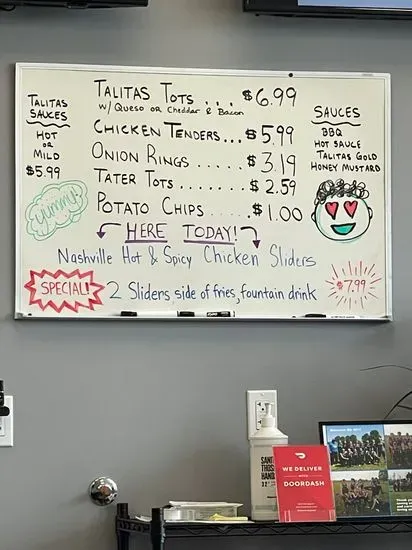 TALITAS TOTS ... $6.99
W/ QUESO OR CHEDDAR & BACON
CHICKEN TENDERS... $5.99
ONION RINGS ...... $3.19
TATER TOTS ...... $2.59
POTATO CHIPS ..... $1.00
TALITAS
SAUCES
HOT
OR
MILD
$5.99
yummy!
SAUCES
BBQ
HOT SAUCE
TALITAS GOLD
HONEY MUSTARD
HERE TODAY!
Nashville Hot & Spicy Chicken Sliders
SPECIAL! 2 Sliders side of fries, fountain drink $7.99
WE DELIVER
WITH
DOORDASH